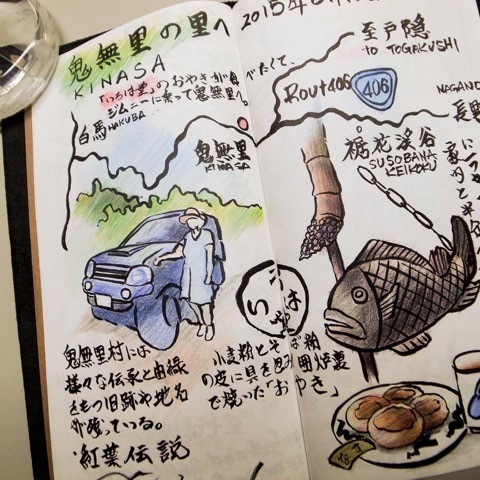 鬼無里の里へ
KINASA
「いろは堂」のおやきが食べたくて、
ジムニーに乗って鬼無里へ。
白馬
HAKUBA
鬼無里
KINASA
鬼無里村には
様々な伝承と由緒
をもつ旧跡や地名
が残っている。
・紅葉伝説
2015年
至戸隠
to TOGAKUSHI
Rout406
406
NAGANO
長野
裾花渓谷
SUSOBANA
KEIKOKU
いろは
小麦粉とそば粉
の皮に具を包み囲炉裏
で焼いた「おやき」